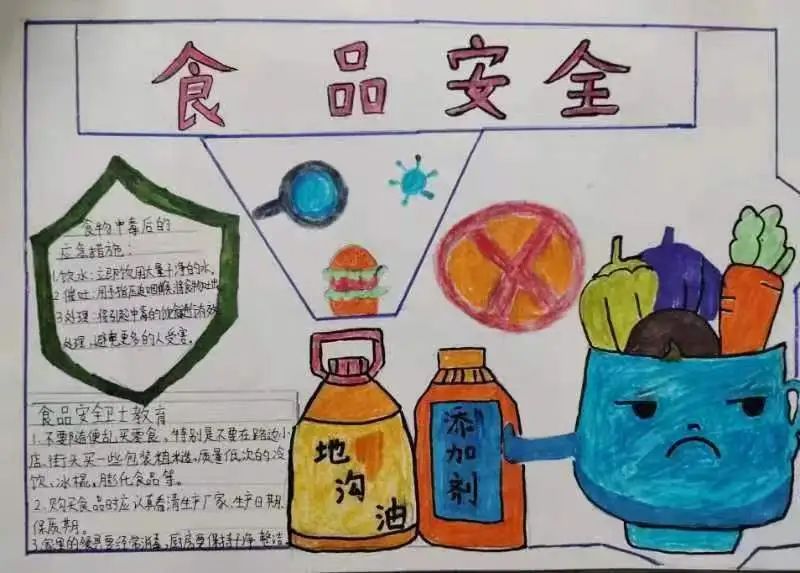 食品安全
食物中毒后的
应急措施：
1.饮水：立即饮用大量干净的水。
2.催吐：用手指压迫咽喉，将食物吐出
3.处理：将引起中毒的饮食进行有效
处理，避免更多的人受害。
食品安全卫士教育
1.不要随便乱买零食，特别是不要在路边小
店、街头买一些包装粗糙，质量低次的冷
饮、冰棍，膨化食品等。
2.购买食品时应认真看清生产厂家、生产日期、
保质期。
3.家里的餐具要经常消毒，厨房要保持干净、整洁
地沟油
添加剂